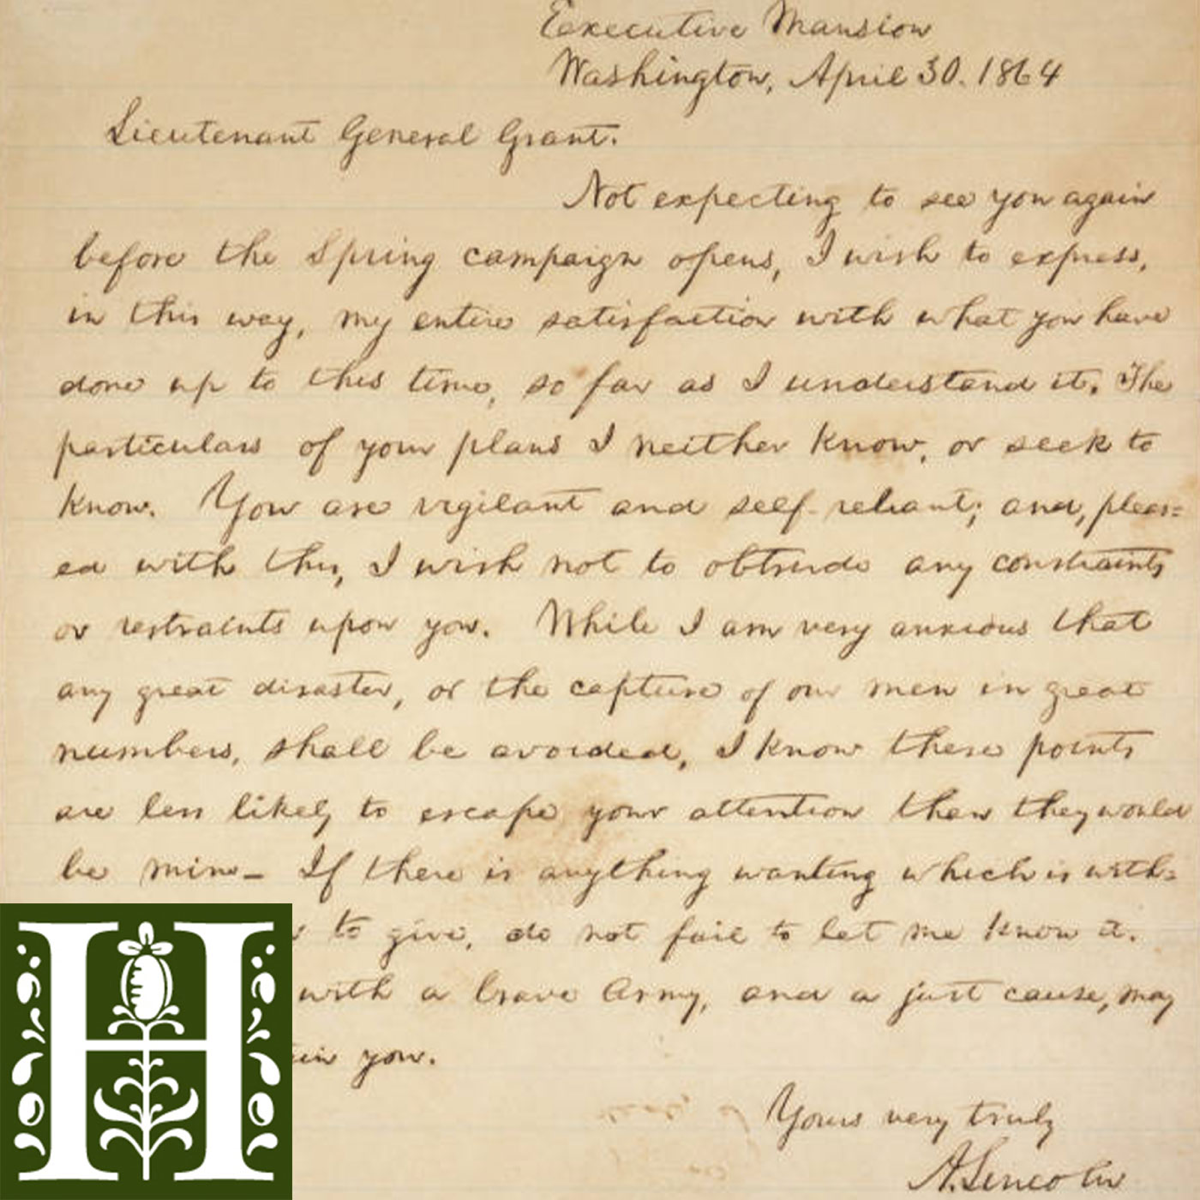 Executive Mansion
Washington, April 30. 1864
Lieutenant General Grant.
Not expecting to see you again
before the Spring campaign opens, I wish to express,
in this way, my entire satisfaction with what you have
done up to this time, so far as I understand it. The
particulars of your plans I neither know, or seek to
know. You are vigilant and self-reliant; and, pleas=
ed with this, I wish not to obtrude any constraints
or restraints upon you. While I am very anxious that
any great disaster, or the capture of our men in great
numbers, shall be avoided, I know these points
are less likely to escape your attention than they would
be mine_ If there is anything wanting which is with=
to give, do not fail to let me know it.
with a brave Army, and a just cause, may
you.
Yours very truly
A. Lincoln
H